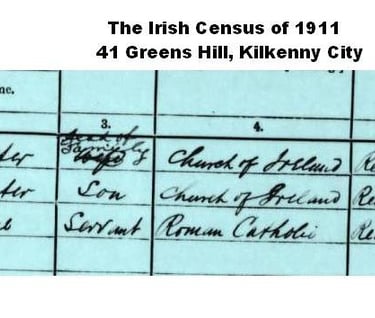 The Irish Census of 1911
41 Greens Hill, Kilkenny City
me.
3. 4.
Head of
Family
wife Church of Ireland Re
ter Son Church of Ireland Re
Servant Roman Catholic Re